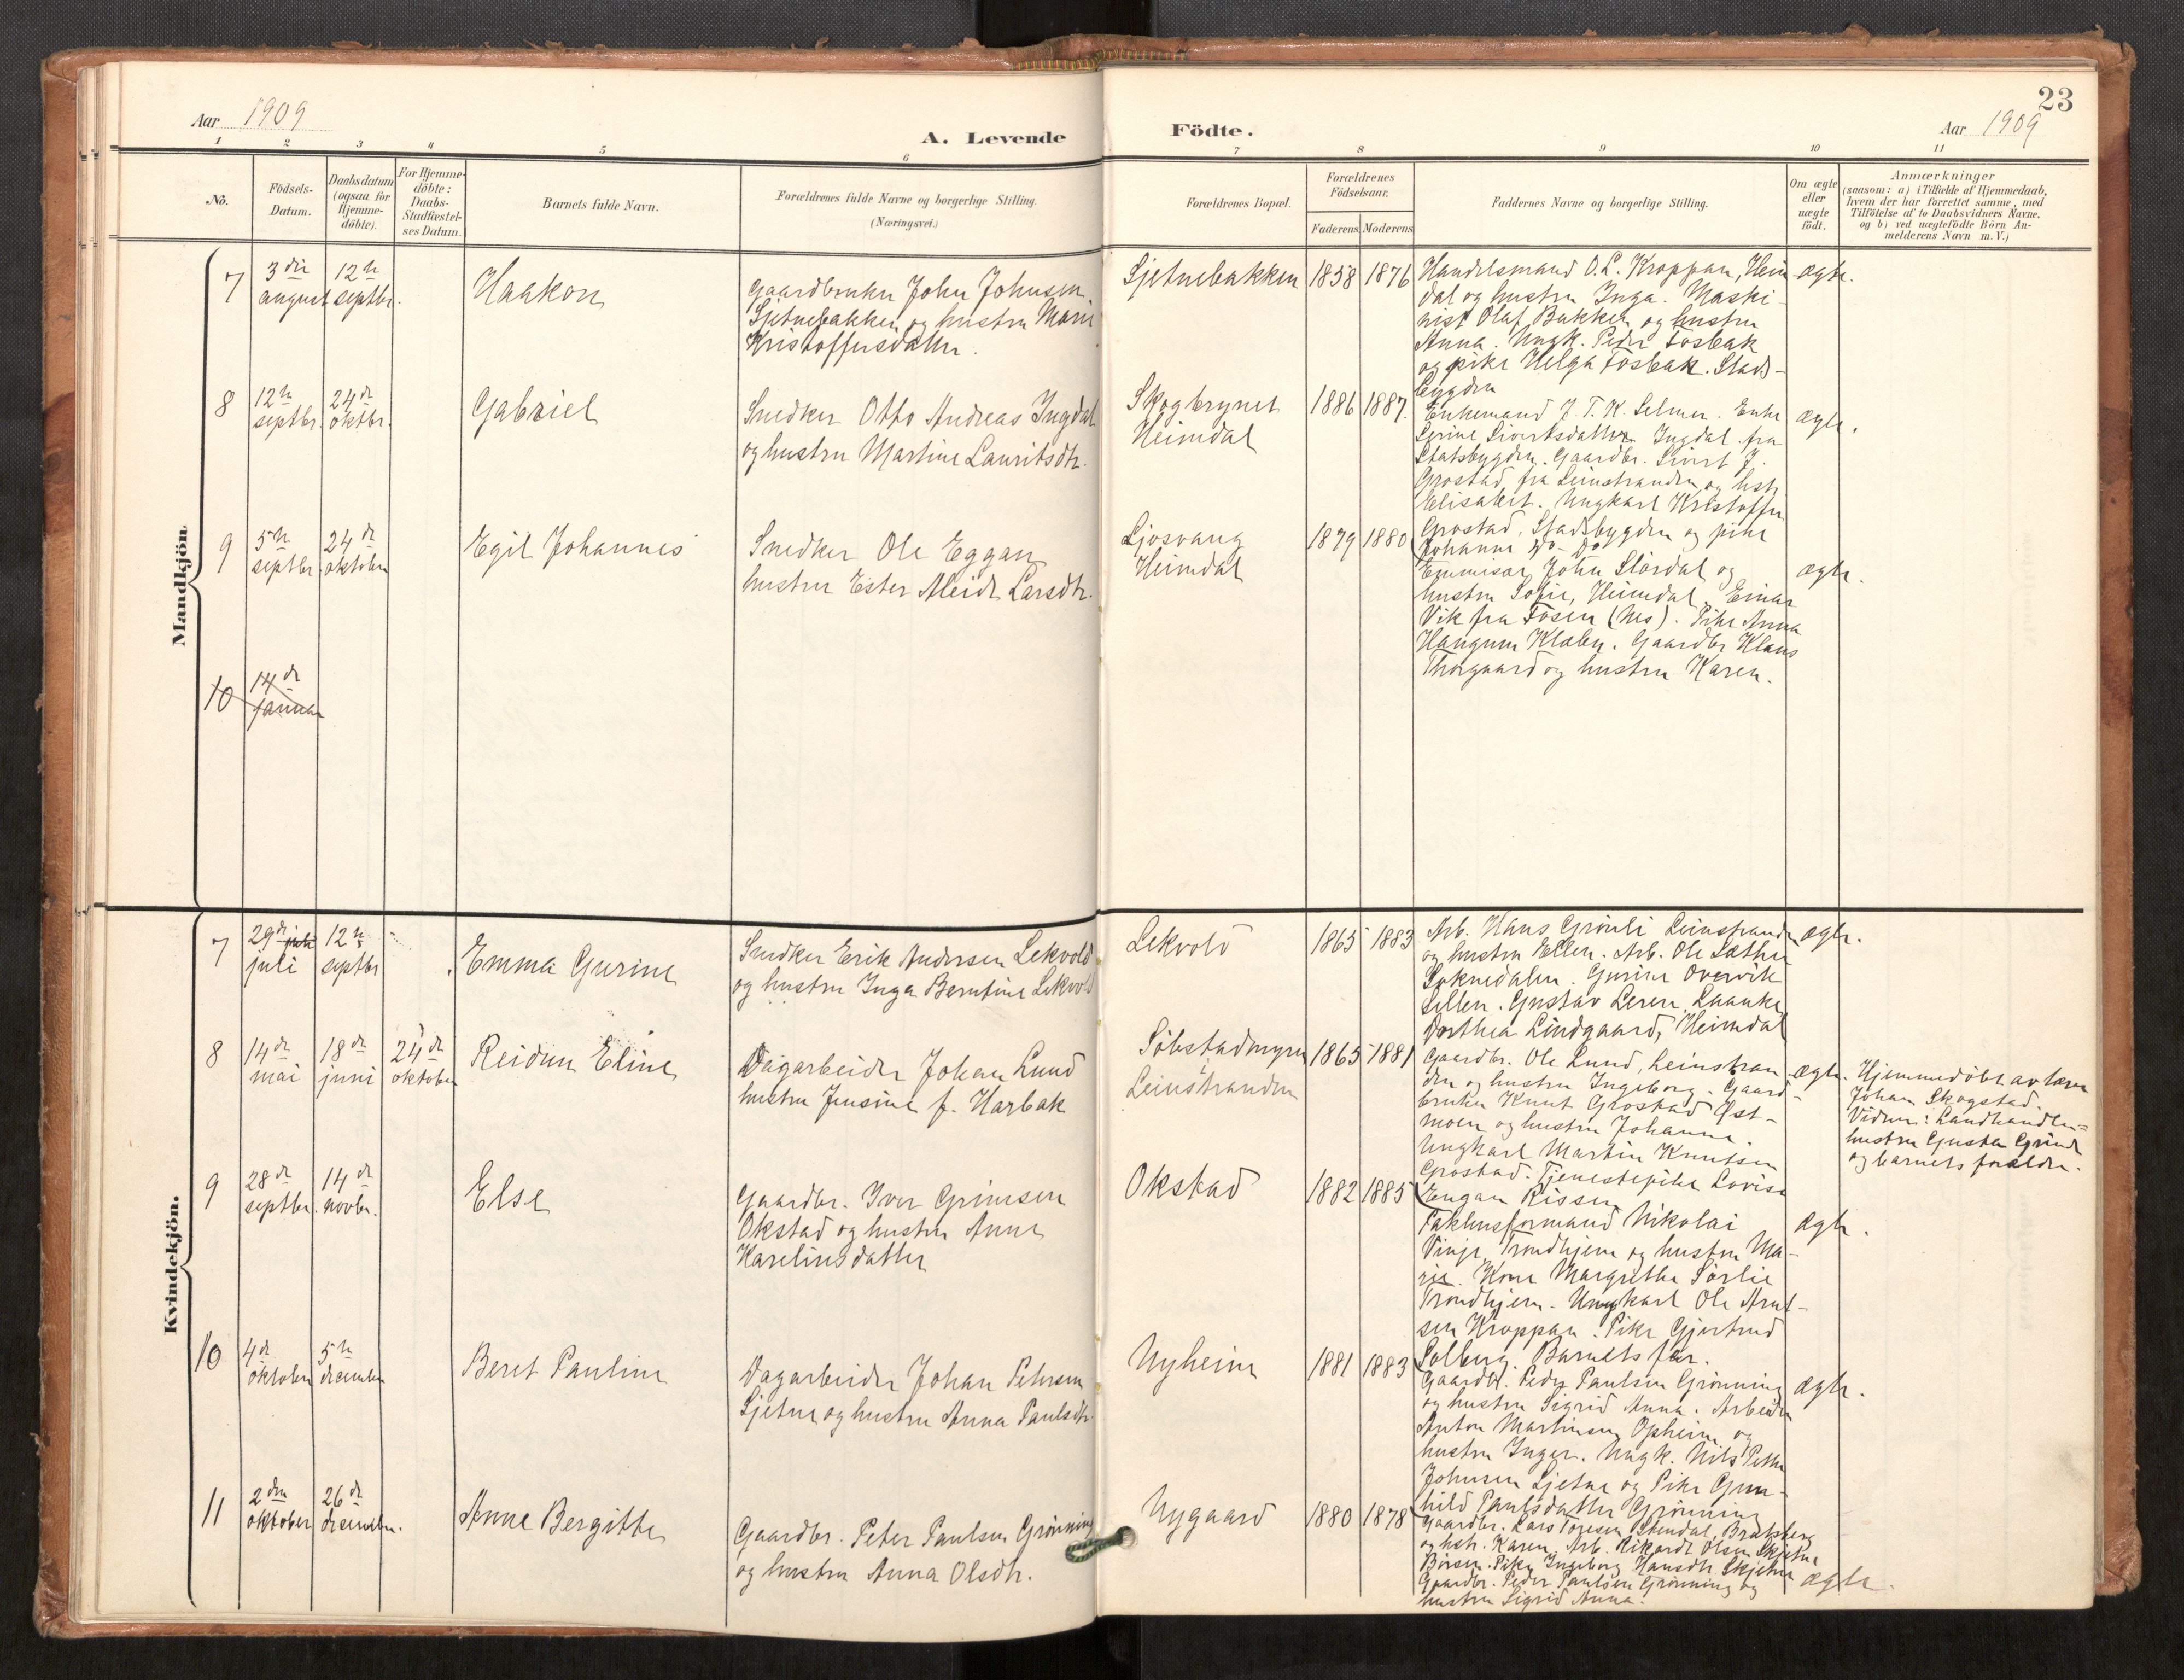 23
Aar 1909
A. Levende Födte.
Aar 1909
1 2 3 4 5 6 7 8 9 10 11
No.
Födsels-
Datum.
Daabsdatum
(ogsaa for
Hjemme-
döbte).
For Hjemme-
döbte:
Daabs-
Stadfæstel-
ses Datum.
Barnets fulde Navn.
Forældrenes fulde Navne og borgerlige Stilling.
(Næringsvei.)
Forældrenes Bopæl.
Forældrenes
Födselsaar.
Faderens
Moderens
Faddernes Navne og borgerlige Stilling.
Om ægte
eller
uægte
födt.
Anmærkninger
(saasom: a) i Tilfælde af Hjemmedaab,
hvem der har forrettet samme, med
Tilföielse af to Daabsvidners Navne.
og b) ved uægtefödte Börn An-
melderens Navn m. V.)
Mandkjön
7
3die
august
12te
septbr.
Haakon
Gaardbruker John Johnsen
Sjetnebakken og hustru Marie
Kristoffersdatter.
Sjetnebakken
1858
1876
Handelsmand O. L. Kroppan, Heim-
dal og hustru Inga. Maski-
nist Olaf Bakken og hustru
Anna. Ungk. Peder Fosbak
og pike Helga Fosbak. Stads-
bygden
ægte.
8
12te
septbr.
24de
oktbr.
Gabriel
Snedker Otto Andreas Ingdal
og hustru Martine Lauritsdtr.
Skogbrynet
Heimdal
1886
1887.
Enkemand J. T. K. Selmer. Enke
Serine Sivertsdatter Ingdal fra
Statsbygden. Gaardbr. Sivert J.
Grostad fra Leinstranden og hst.
Elisabet. Ungkarl Kristoffer
Grostad, Stadsbygden og pike
Johanne Do - Do
ægte.
9
5te
septbr.
24de
oktober
Egil Johannes
Snedker Ole Eggan
hustru Ester Aleide Larsdtr.
Ljosvang
Heimdal
1879
1880
Emmisær John Slördal og
hustru Sofie, Heimdal, Einar
Vik fra Fosen (Nes). Pike Anna
Haugum Klæbu. Gaardbr Klaus
Thorgaard og hustru Karen.
ægte.
10
14de
januar
Kvindekjön.
7
29de juli
juli
12te
septbr
Emma Gurine
Snedker Erik Andersen Lekvold
og hustru Inga Berntine Lekvold
Lekvold
1865
1883
Arb. Hans Grönli Leinstranden
og hustru Ellen. Arb. Ole Sæther
Soknedalen. Gurine Overvik
Selbu. Gustav Leren Laanke
Dorthea Lindgaard, Heimdal
ægte.
8
14de
mai
18de
juni
24de
oktober
Reidun Eline
Dagarbeider Johan Lund
hustru Jensine f. Harbak
Söbstadmyren
Leinstranden
1865
1881
Gaardbr. Ole Lund, Leinstran-
den og hustru Ingeborg. Gaard-
bruker Knut Grostad Öst-
moen og hustru Johanna.
Ungkarl Martin Knutsen
Grostad. Tjenestepike Lovise
Engan Rissen
ægte.
Hjemmedöbt av lærer
Johan Skogstad.
Vidner: Landhandler-
hustru Gusta Grind
og barnets forældre.
9
28de
septbr.
14de
novbr.
Else
Gaardbr. Iver Grimsen
Okstad og hustru Anne
Karelinsdatter
Okstad
1882
1885
Pakhusformand Nikolai
Vinje Trondhjem og hustru Ma-
rie. Kone Margrethe Sörlie
Trondhjem - Ungkarl Ole Arnt-
sen Kroppan. Pike Gjertrud
Solberg. Barnets far.
ægte.
10
4de
oktober
5te
december
Beret Pauline
Dagarbeider Johan Petersen
Sjetne og hustru Anna Paulsdtr.
Nyheim
1881
1883
Gaardbr. Peder Paulsen Grönning
og hustru Sigrid Anna. Arbeider
Anton Martinsen Opheim og
hustru Inger. Ungk. Nils Petter
Johnsen Sjetne og Pike Gun-
hild Paulsdatter Grönning
ægte.
11
2den
oktober
26de
december.
Anne Bergitte
Gaardbr. Peter Paulsen Grönning
og hustru Anna Olsdtr.
Nygaard
1880
1878
Gaardbr. Lars Toresen Stendal, Bratsberg
og hst. Karen. Arb. Rikard Olsen Skjetne
Börsen. Pike Ingeborg Hansdtr. Skjetne
Gaardbr. Peder Paulsen Grönning og
hustru Sigrid Anna.
ægte.